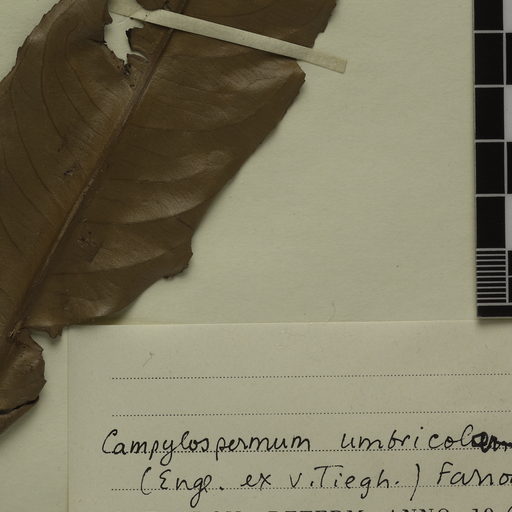 Campylospermum umbricol
(Engl. ex v. Tiegh.) Farro
DETERM. ANNO 19